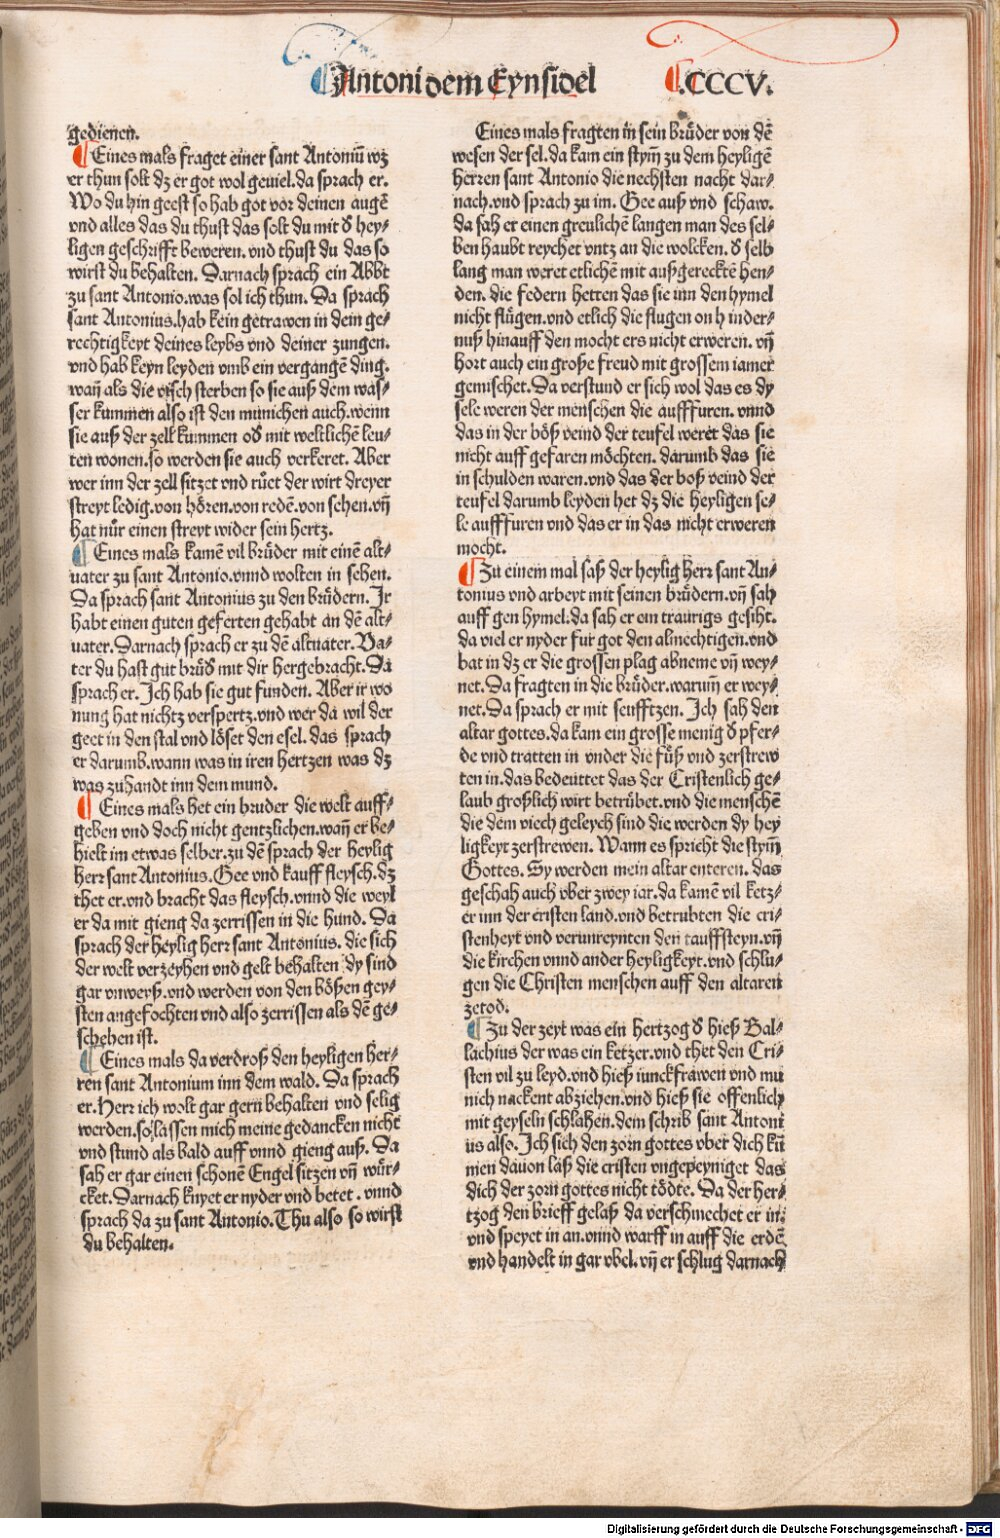 Antoni dem Eynsidel
.CCCV.
gedienen.
Eines mals fraget einer sant Antoniū wz
er thun solt dz er got wol geuiel.da sprach er.
Wo du hin geest so hab got vor deinen augē
vnd alles das du thust das solt du mit d̕ hey⸗
ligen geschrifft beweren.vnd thust du das so
wirst du behalten. Darnach sprach ein Abbt
zu sant Antonio.was sol ich thun. Da sprach
sant Antonius.hab kein getrawen in dein ge⸗
rechtigkeyt deines leybs vnd deiner zungen.
vnd hab keyn leyden vmb ein vergangē ding.
wañ als die visch sterben so sie auß dem was⸗
ser kummen also ist den münichen auch.wenn
sie auß der zell kummen od̕ mit weltlichē leu⸗
ten wonen.so werden sie auch verkeret. Aber
wer inn der zell sitzet vnd růet der wirt dreyer
streyt ledig.von hören.von redē.von sehen.vñ
hat nůr einen streyt wider sein hertz.
Eines mals kamē vil brůder mit einē alt⸗
uater zu sant Antonio.vnnd wolten in sehen.
Da sprach sant Antonius zu den brůdern. Ir
habt einen guten geferten gehabt an dē alt⸗
uater.Darnach sprach er zu dē altuater. Va⸗
ter du hast gut brůd̕ mit dir hergebracht.Da
sprach er. Ich hab sie gut funden. Aber ir wo
nung hat nichtz verspertz.vnd wer da wil der
geet in den stal vnd löset den esel. das sprach
er darumb.wann was in iren hertzen was dz
was zuhandt inn dem mund.
Eines mals het ein bruder die welt auff⸗
geben vnd doch nicht gentzlichen.wañ er be⸗
hielt im etwas selber.zu dē sprach der heylig
herr sant Antonius.Gee vnd kauff fleysch.dz
thet er.vnd bracht das fleysch.vnnd die weyl
er da mit gieng da zerrissen in die hund. Da
sprach der heylig herr sant Antonius. die sich
der welt verzeyhen vnd gelt behalten dy sind
gar vnweyß.vnd werden von den bößen gey⸗
sten angefochten vnd also zerrissen als dē ge⸗
schehen ist.
Eines mals da verdroß den heyligen her⸗
ren sant Antonium inn dem wald. Da sprach
er.Herr ich wolt gar gern behalten vnd selig
werden.so lassen mich meine gedancken nicht
vnd stund als bald auff vnnd gieng auß. Da
sah er gar einen schonē Engel sitzen vñ wůr⸗
cket.Darnach knyet er nyder vnd betet . vnnd
sprach da zu sant Antonio.Thu also so wirst
du behalten.
Eines mals fragten in sein brůder von dē
wesen der sel.da kam ein stym̄ zu dem heyligē
herren sant Antonio die nechsten nacht dar⸗
nach.vnd sprach zu im. Gee auß vnd schaw.
da sah er einen greulichē langen man des sel⸗
ben haubt reychet vntz an die wolcken. d̕ selb
lang man weret etlichē mit außgerecktē hen⸗
den. die federn hetten das sie inn den hymel
nicht flůgen.vnd etlich die flugen on hinder⸗
nuß hinauff den mocht ers nicht erweren. vñ
hort auch ein große freud mit grossem iamer
gemischet.Da verstund er sich wol das es dy
sele weren der menschen die aufffuren. vnnd
das in der böß veind der teufel weret das sie
nicht auff gefaren möchten. darumb das sie
in schulden waren.vnd das der boß veind der
teufel darumb leyden het dz die heyligen se⸗
le aufffuren vnd das er in das nicht erweren
mocht.
Zu einem mal saß der heylig herr sant An⸗
tonius vnd arbeyt mit seinen brůdern.vñ sah
auff gen hymel.da sah er ein traurigs gesiht.
da viel er nyder fur got den almechtigen.vnd
bat in dz er die grossen plag abneme vñ wey⸗
net.Da fragten in die brůder.warum̄ er wey⸗
net.Da sprach er mit seufftzen. Ich sah den
altar gottes.da kam ein grosse menig d̕ pfer⸗
de vnd tratten in vnder die fůß vnd zerstrew
ten in.das bedeuttet das der Cristenlich ge⸗
laub großlich wirt betrůbet.vnd die menschē
die dem viech geleych sind die werden dy hey
ligkeyt zerstrewen. Wann es spricht die stym̄
Gottes. Sy werden mein altar enteren. das
geschah auch vber zwey iar.da kamē vil ketz⸗
er inn der cristen land.vnd betrubten die cri⸗
stenheyt vnd verunreynten den tauffsteyn.vñ
die kirchen vnnd ander heyligkeyt.vnd schlu⸗
gen die Christen menschen auff den altaren
zetod.
Zu der zeyt was ein hertzog d̕ hieß Bal⸗
lachius der was ein ketzer.vnd thet den Cri⸗
sten vil zu leyd.vnd hieß iunckfrawen vnd mü
nich nackent abziehen.vnd hieß sie offenlich
mit geyseln schlahen.dem schrib sant Antoni
us also.Ich sich den zorn gottes vber dich kū
men dauon laß die cristen vngepeyniget das
dich der zorn gottes nicht tödte. Da der her⸗
tzog den brieff gelaß da verschmechet er in.
vnd speyet in an.vnnd warff in auff die erdē
vnd handelt in gar vbel.vñ er schlug darnach
Digitalisierung gefördert durch die Deutsche Forschungsgemeinschaft - DFG